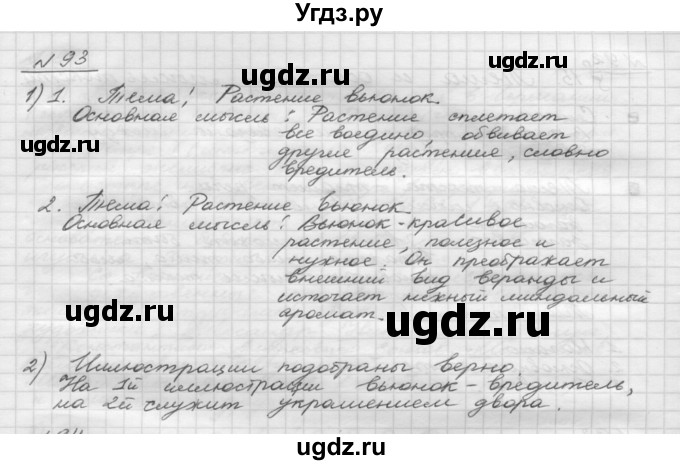 Угдз.ру
№93
ugdz.ru
1) 1. Тема: Растение вьюнок.
Основная мысль: Растение сплетает
все воедино, обвивает
другие растения, словно
вредитель.
ugdz.ru
2. Тема: Растение вьюнок.
Основная мысль: Вьюнок - красивое
растение, полезное и
нужное. Он преображает
внешний вид веранды и
источает нежный миндальный
аромат.
ugdz.ru
ugdz.ru
2) Иллюстрации подобраны верно.
На 1й иллюстрации вьюнок - вредитель,
на 2й служит украшением двора.
ugdz.ru
ugdz.ru